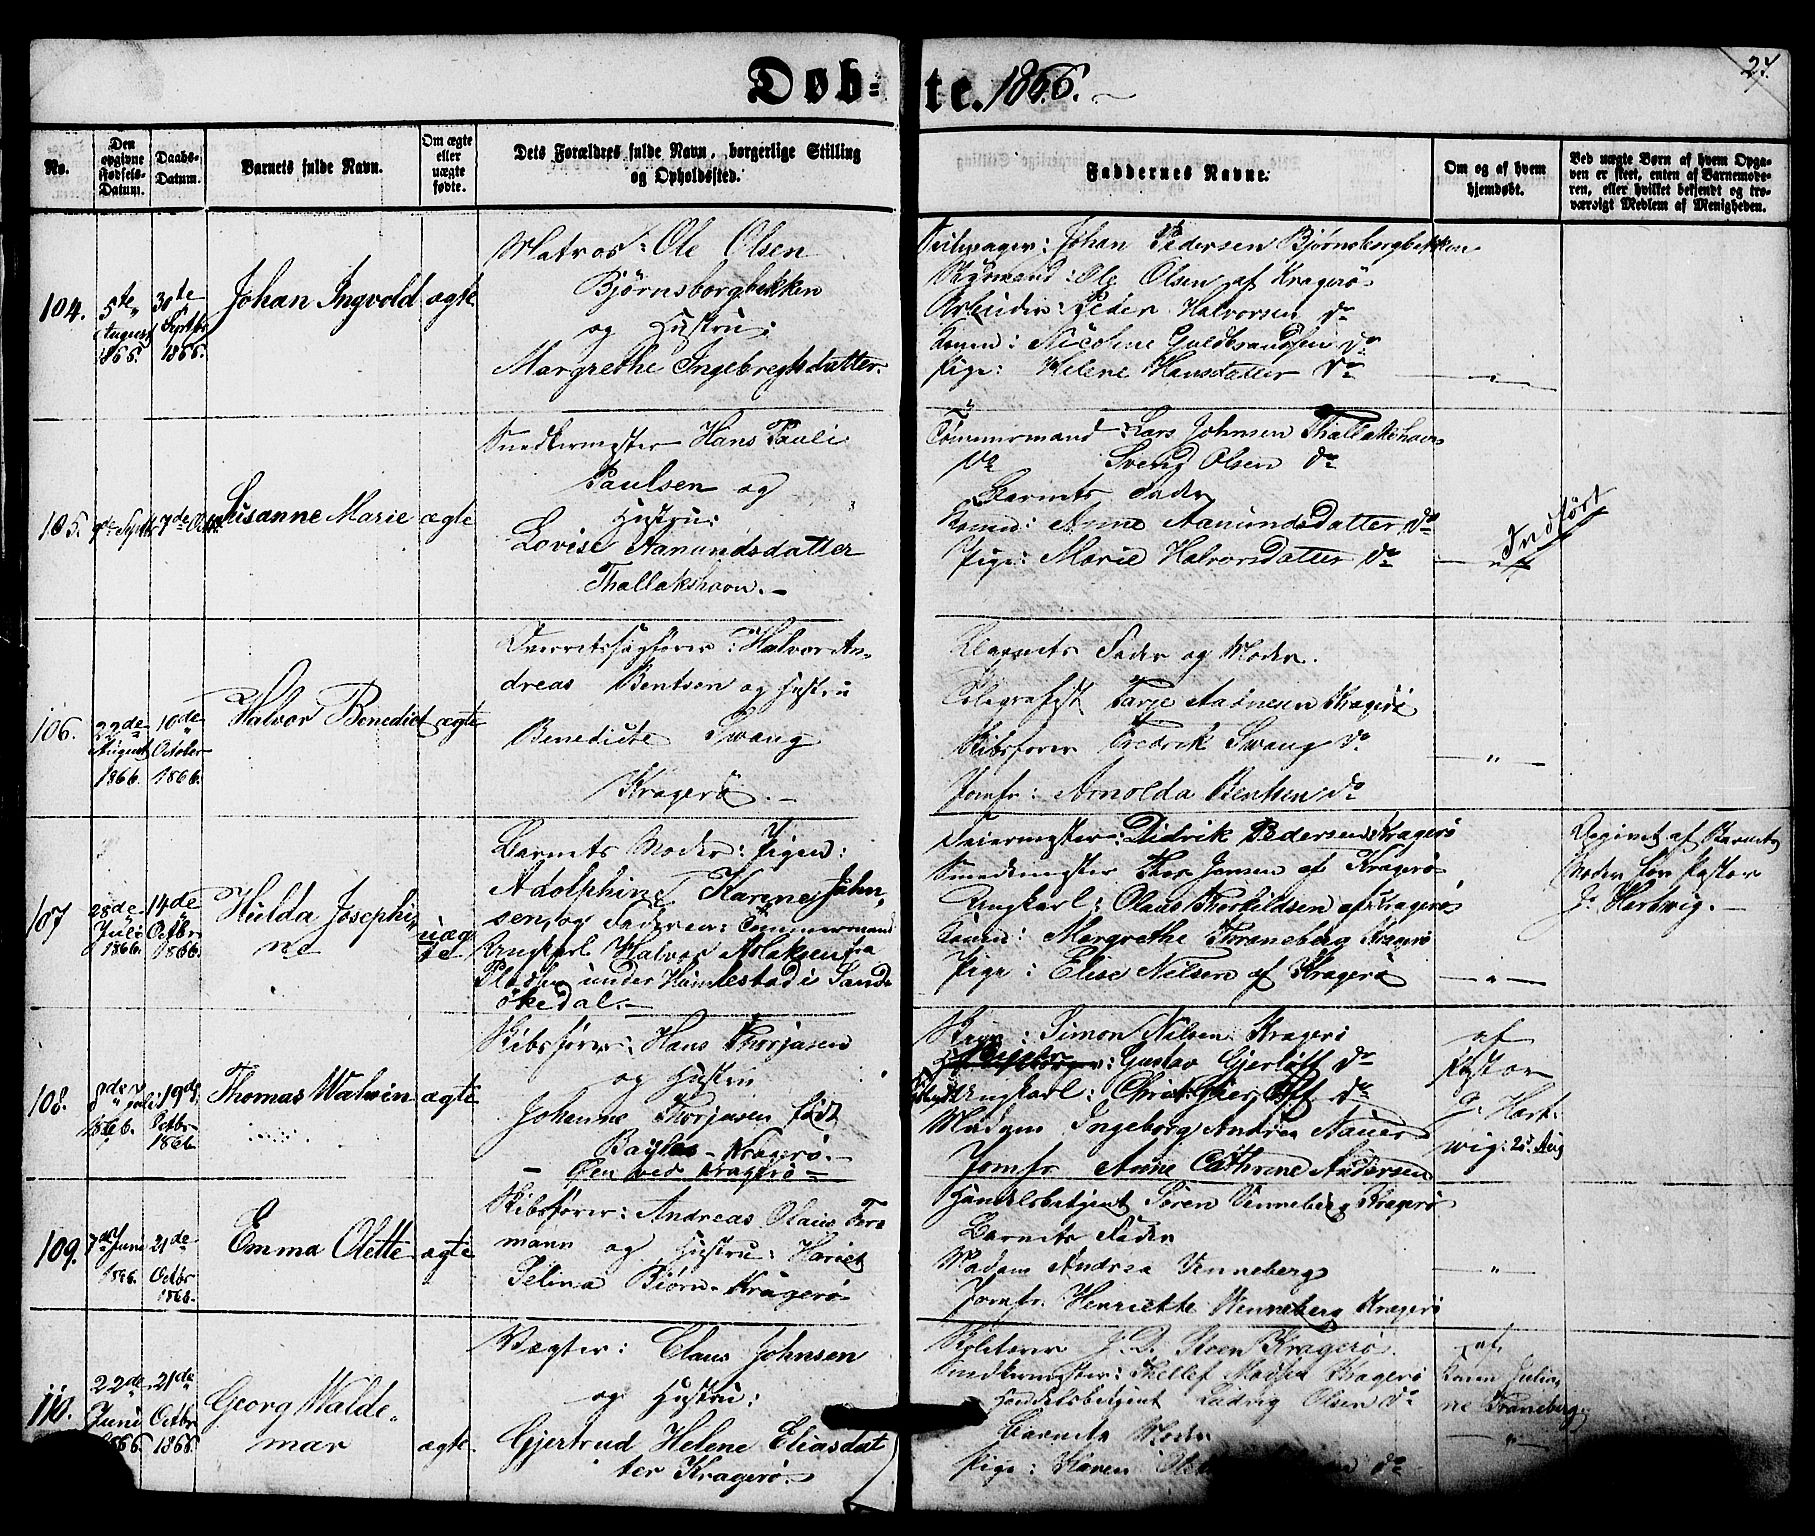 Døb-te. 1866.
24.
No.
Den opgivne Fødsels-Datum.
Daabs-Datum.
Barnets fulde Navn.
Om ægte eller uægte fødte.
Dets Forældres fulde Navn, borgerlige Stilling og Opholdssted.
Faddernes Navne.
Om og af hvem hjemdøbt.
Ved uægte Børn af hvem Opga-
ven er skeet, enten af Barnemode-
ren, eller hvilket bekjendt og tro-
værdigt Medlem af Menigheden.
104.
5te August 1866.
30te Septbr 1866.
Johan Ingvold
ægte
Matros: Ole Olsen
Bjørnsborgbekken
og Hustru:
Margrethe Ingebregtsdatter.
Johan Pedersen Bjørnsborgbekken
Styrmand: Ole Olsen af Kragerö
Arbeider: Peder Halvorsen do
Konen: Nicoline Guldbrandsen do
Pige: Helene Hansdatter do
105.
7de Octbr
Susanne Marie
ægte
Snedkermester Hans Pauli
Paulsen og
Hustru:
Lovise Aamundsdatter
Thallakshavn.
Tømmermand: Lars Johnsen Thallakshavn
do Svend Olsen do
Barnets Fader
Konen: Anne Aamundsdatter do
Pige: Marie Halvorsdatter do
Indført
106.
22de August 1866.
10de October 1866.
Halvor Benedict
ægte
Overretssagfører: Halvor An-
dreas Bentsen og Hustru
Benedicte Swang
Kragerö.
Barnets Fader og Moder.
Telegrafist Tarje Aadnesen Kragerö
Skibsfører Fredrik Swang do
Jomfr: Arnolda Bentsen do
107
28de Juli 1866.
14de Octbr 1866.
Hulda Josephi-
ne
uæg
te
Barnets Moder: Pigen:
Adolphine Karine John-
sen, og Faderen: Tömmermand
Ungkarl Halvor Aslaksen fra
Pladsen under Hamlestad i Sand-
økedal.
Feiermester: Didrik Pedersen Kragerö
Smedmester Thor Jensen af Kragerö
Ungkarl: Olaus Thorkildsen af Kragerö
Konen: Margrethe Traneberg Kragerö
Pige: Elise Nilsen af Kragerö
Opgivet af Barnets
Moder for Pastor
J. Hartwig.
108.
8de Juli 1866.
19de Octbr 1866.
Thomas Walwin
ægte
Skibsfører: Hans Thorjusen
og Hustru
Johanne Thorjusen født
Kragerö.
Øen ved Kragerö
Simon Nilsen Kragerö
Gustav Gjerløff do
Ungkarl: Christ: Gjerløff do
Madam Ingeborg Andrea Aauer
Jomfr Anne Cathrine Andersen
af
Pastor
J. Hart-
wig: 25. Aug
109.
7de Juni 1866.
21de Octbr 1866.
Emma Olette
ægte
Skibsfører: Andreas Olaus Fer-
mann og Hustru: Hariet
Selina Bjørn Kragerö
Handelsbetjent Søren Venneberg Kragerö
Barnets Fader
Madam Andrea Venneberg
Jomfr. Henriette Wenneberg Kragerö
110.
22de Juni 1866.
21de Octbr 1866.
Georg Walde-
mar
ægte
Vægter: Claus Johnsen
og Hustru:
Gjertrud Helene Eliasdat
ter Kragerö.
J. D. Steen Kragerö.
Snedkermester: Thellef Madsen Kragerö
Handelsbetjent Ludvig Olsen do
Barnets Moder
Pige: Karen
af
Karen Julia-
ne Traneberg